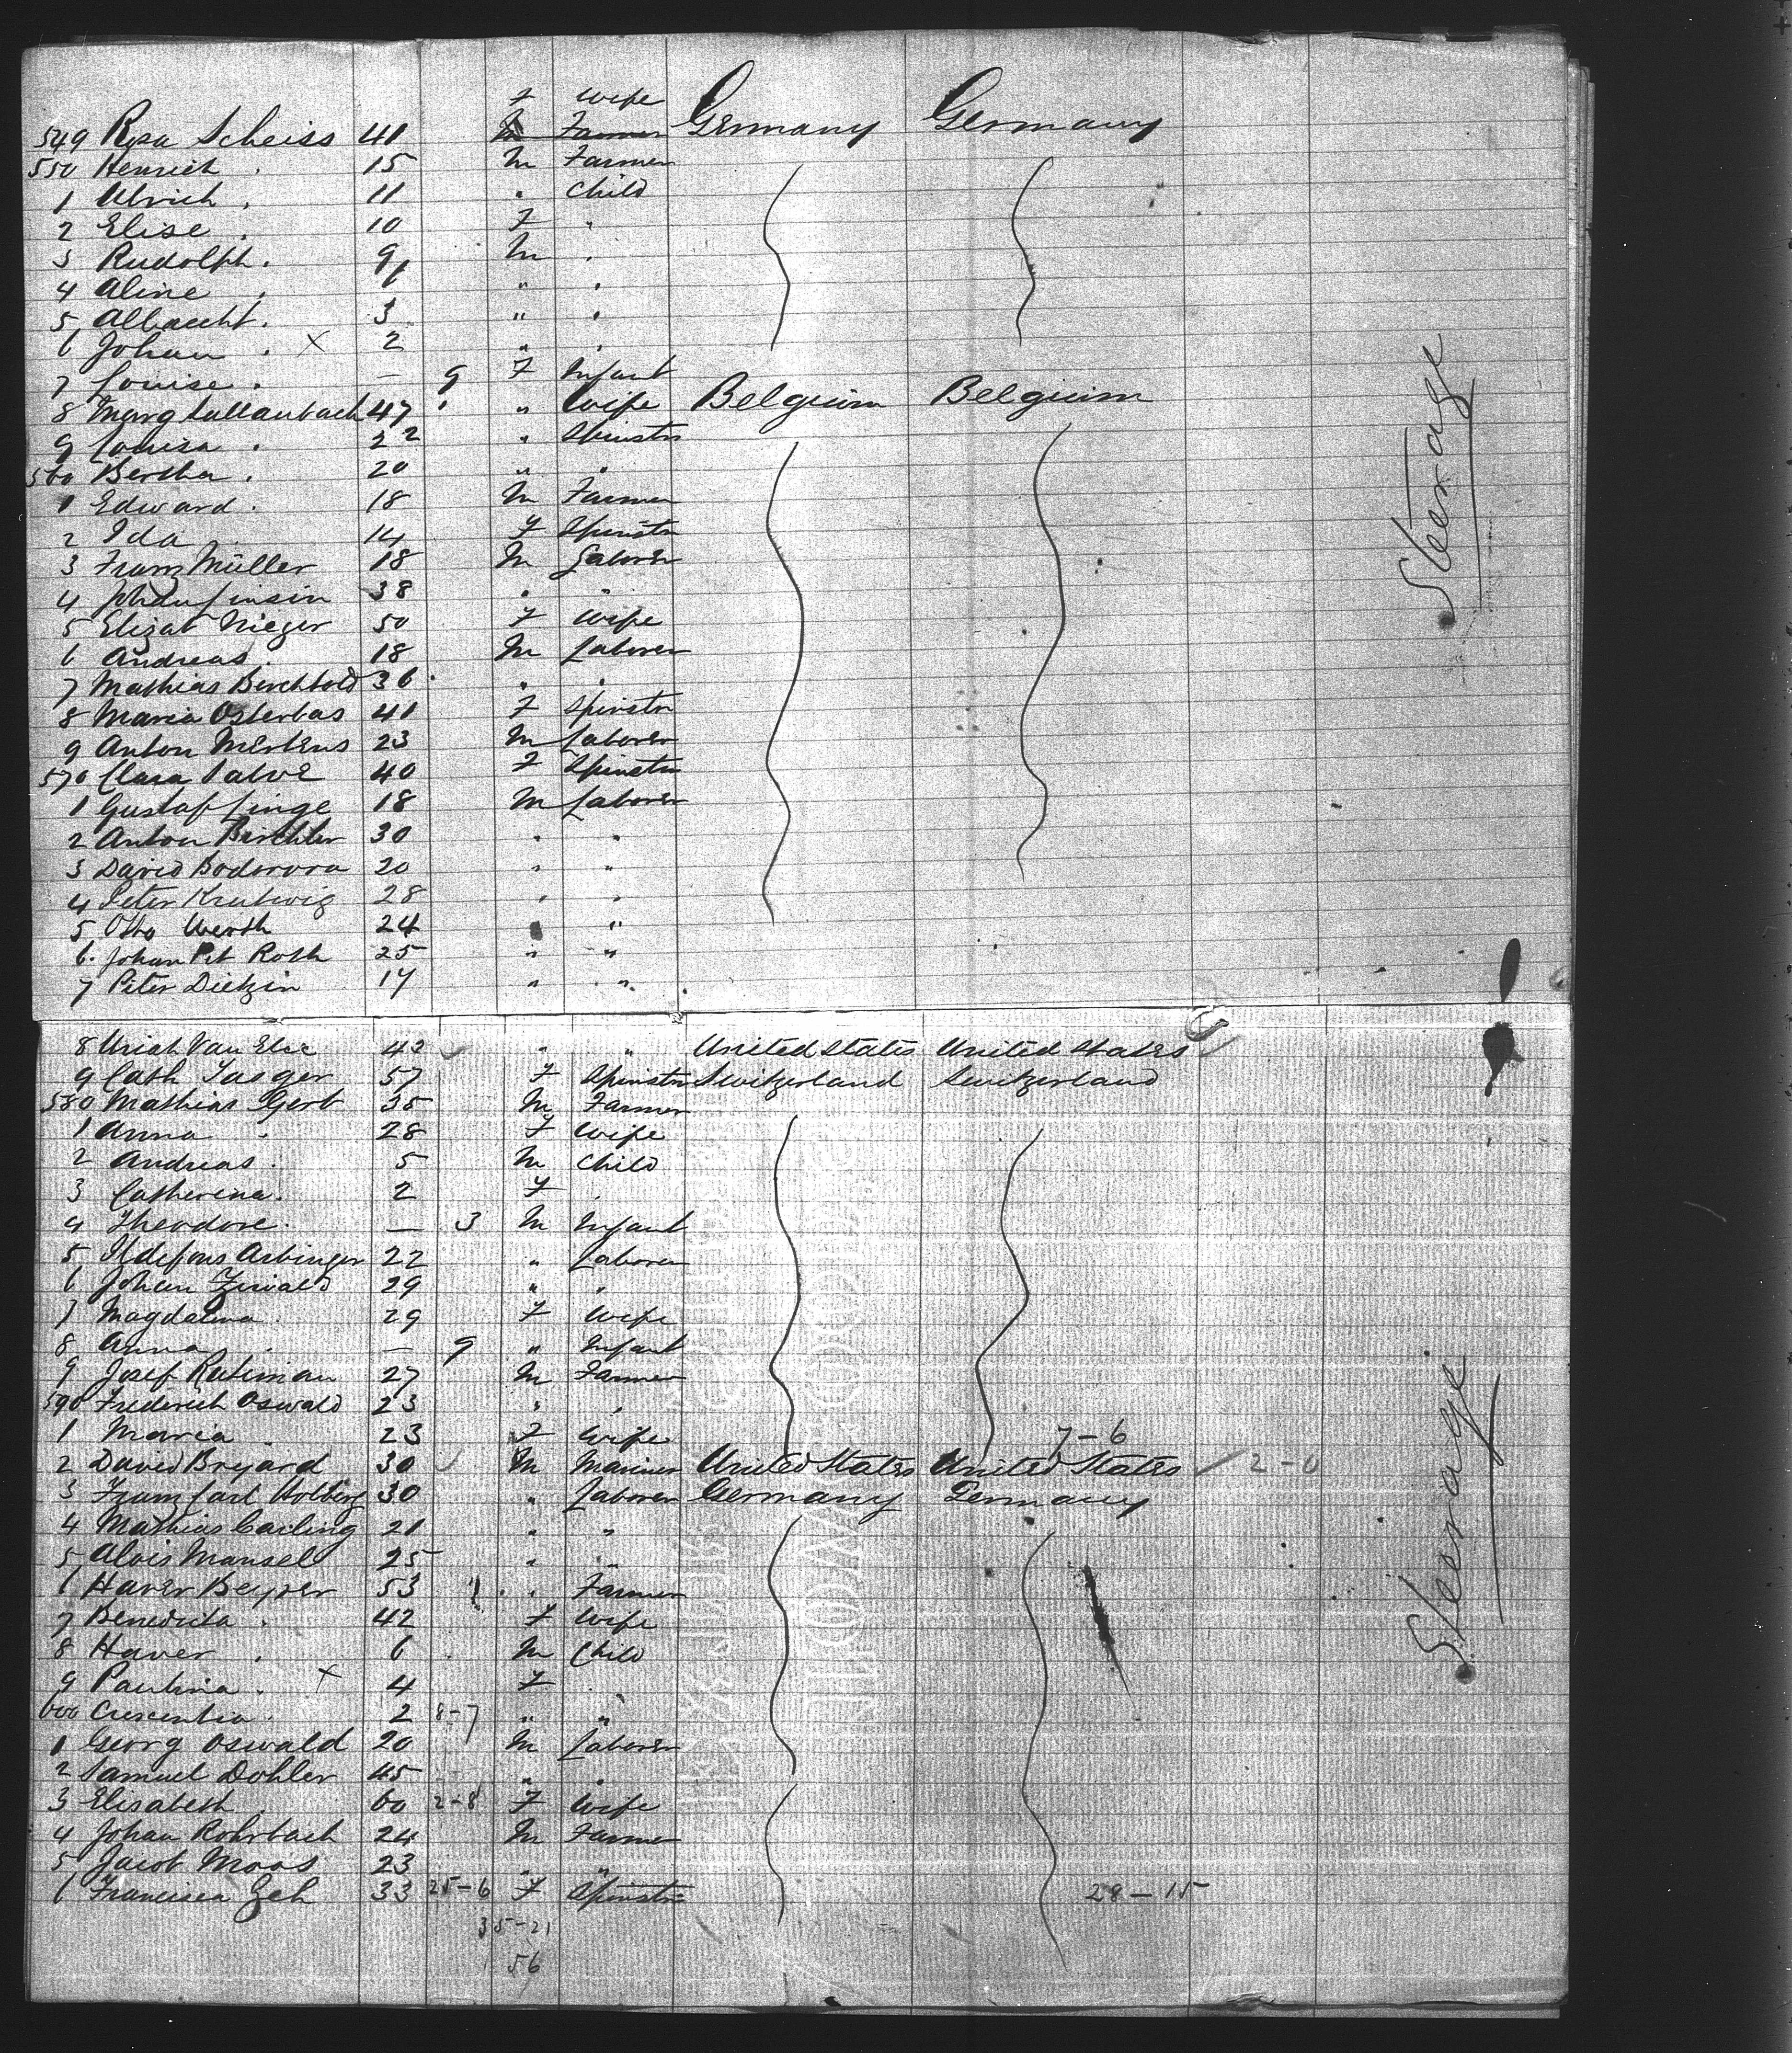 F Wife
549 Rosa Scheiss 41 M Farmer Germany Germany
550 Henrich . 15 M Farmer
1 Ulrich . 11 " Child
2 Elise . 10 F "
3 Rudolph . 9 M "
4 Aline . 6 " "
5 Albrecht . 3 " "
6 Johan . X 2 " "
7 Louise . — 9 F Infant
8 Marg 47 " Wife Belgium Belgium
9 Louisa . 22 " Spinstr
560 Bertha . 20 " "
1 Edward . 18 M Farmer
2 Ida . 14 F Spinstr
3 Franz Müller 18 M Laborer
4 Johan 38 " "
5 Elizab Nieger 50 F Wife
6 Andreas . 18 M Laborer
7 Mathias Berchtold 36 " "
8 Maria Osterbas 41 F Spinstr
9 Anton Mertens 23 M Laborer
570 Clara 40 F Spinstr
1 Gustaf Linge 18 M Laborer
2 Anton Birchler 30 " "
3 David 20 " "
4 Peter Krutwig 28 " "
5 Otto Werth 24 " "
6 Johan Pet Roth 25 " "
7 Peter 17 " "
8 Uriah Van 43 " " United States United States
9 Cath Jaeger 57 F Spinstr Switzerland Switzerland
580 Mathias 35 M Farmer
1 Anna " 28 F Wife
2 Andreas . 5 M Child
3 Catherina . 2 F "
4 Theodore . — 3 M Infant
5 Ildefons 22 " Laborer
6 Johan 29 " "
7 Magdalena . 29 F Wife
8 Anna . — 9 " Infant
9 Josef 27 M Farmer
590 Frederich Oswald 23 " "
1 Maria . 23 F Wife 7-6
2 David 30 M Mariner United States United States 2-0
3 Franz Carl Holberg 30 " Laborer Germany Germany
4 Mathias 21 " "
5 Alois Mansel 25 " "
6 Haver 53 " Farmer
7 Benedicta . 42 F Wife
8 Haver . 6 M Child
9 Paulina . X 4 F "
600 Crescentia . 2 8-7 " "
1 Georg Oswald 20 M Laborer
2 Samuel Dohler 45 " "
3 Elisabeth . 60 2-8 F Wife
4 Johan Rohrbach 24 M Farmer
5 Jacob Moos 23 " "
6 Francisca Zeh 33 25-6 F Spinstr 28-15
35-21
56
Steerage
Steerage